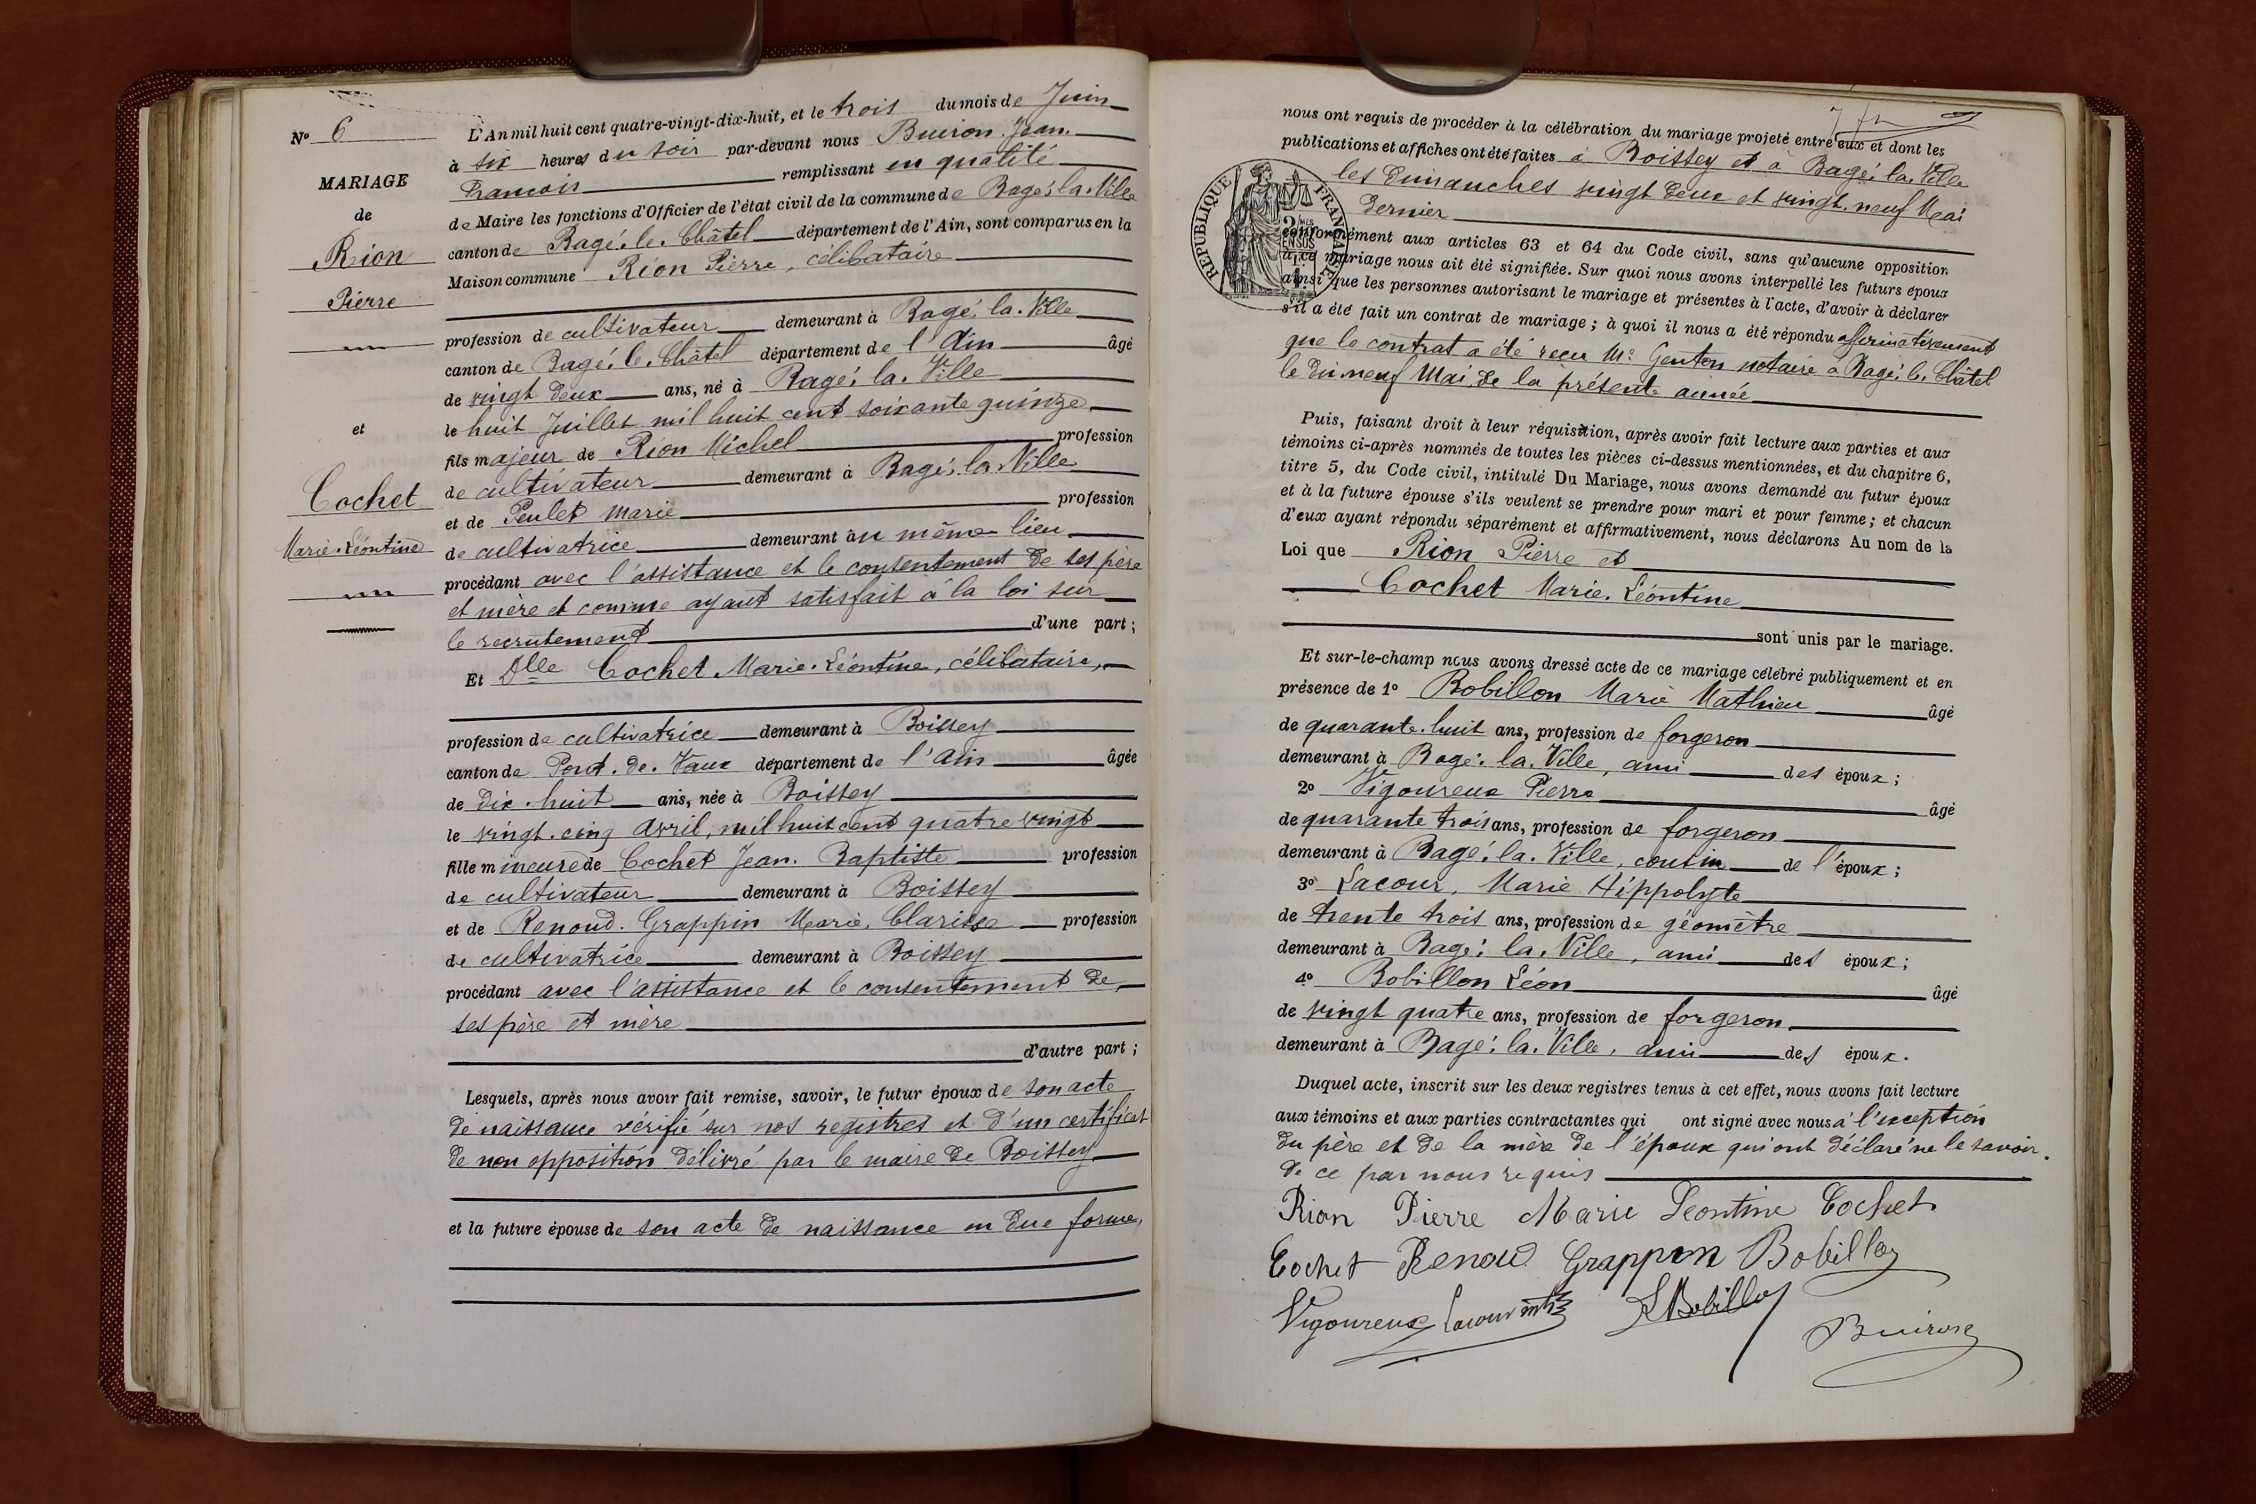 N° 6
MARIAGE
de
Rion
Pierre
et
Cochet
Marie-Léontine
L'An mil huit cent quatre-vingt-dix-huit, et le trois du mois de Juin
à six heures du soir par-devant nous Buiron Jean
François remplissant en qualité
de Maire les fonctions d'Officier de l'état civil de la commune de Bagé-la-Ville
canton de Bagé-le-Châtel département de l'Ain, sont comparus en la
Maison commune Rion Pierre, célibataire
profession de cultivateur demeurant à Bagé-la-Ville
canton de Bagé-le-Châtel département de l'Ain âgé
de vingt deux ans, né à Bagé-la-Ville
le huit Juillet mil huit cent soixante quinze
fils majeur de Rion Michel profession
de cultivateur demeurant à Bagé-la-Ville
et de Peulet Marie profession
de cultivatrice demeurant au même lieu
procédant avec l'assistance et le consentement de ses père
et mère et comme ayant satisfait à la loi sur
le recrutement d'une part ;
Et Dlle Cochet Marie-Léontine, célibataire,
profession de cultivatrice demeurant à Boissey
canton de Pont-de-Vaux département de l'Ain âgée
de dix-huit ans, née à Boissey
le vingt-cinq Avril, mil huit cent quatre vingt
fille mineure de Cochet Jean-Baptiste profession
de cultivateur demeurant à Boissey
et de Renoud-Grappin Marie, Clarisse profession
de cultivatrice demeurant à Boissey
procédant avec l'assistance et le consentement de
ses père et mère
d'autre part ;
Lesquels, après nous avoir fait remise, savoir, le futur époux de son acte
de naissance vérifié sur nos registres et d'un certificat
de non opposition délivré par le maire de Boissey
et la future épouse de son acte de naissance en due forme,
nous ont requis de procéder à la célébration du mariage projeté entre eux et dont les
publications et affiches ont été faites à Boissey et à Bagé-la-Ville
les Dimanches vingt deux et vingt-neuf Mai
dernier
RÉPUBLIQUE FRANÇAISE
conformément aux articles 63 et 64 du Code civil, sans qu'aucune opposition
à ce mariage nous ait été signifiée. Sur quoi nous avons interpellé les futurs époux
ainsi que les personnes autorisant le mariage et présentes à l'acte, d'avoir à déclarer
s'il a été fait un contrat de mariage ; à quoi il nous a été répondu affirmativement
que le contrat a été reçu Me Genton notaire à Bagé-le-Châtel
le dix neuf Mai de la présente année
Puis, faisant droit à leur réquisition, après avoir fait lecture aux parties et aux
témoins ci-après nommés de toutes les pièces ci-dessus mentionnées, et du chapitre 6,
titre 5, du Code civil, intitulé Du Mariage, nous avons demandé au futur époux
et à la future épouse s'ils veulent se prendre pour mari et pour femme ; et chacun
d'eux ayant répondu séparément et affirmativement, nous déclarons Au nom de la
Loi que Rion Pierre et
Cochet Marie-Léontine
sont unis par le mariage.
Et sur-le-champ nous avons dressé acte de ce mariage célébré publiquement et en
présence de 1° Bobillon Marie Mathieu âgé
de quarante-huit ans, profession de forgeron
demeurant à Bagé-la-Ville, ami des époux ;
2° Vigoureux Pierre âgé
de quarante trois ans, profession de forgeron
demeurant à Bagé-la-Ville, cousin de l'époux ;
3° Lacour, Marie Hippolyte
de trente trois ans, profession de géomètre
demeurant à Bagé-la-Ville, ami des époux ;
4° Bobillon Léon âgé
de vingt quatre ans, profession de forgeron
demeurant à Bagé-la-Ville, ami des époux.
Duquel acte, inscrit sur les deux registres tenus à cet effet, nous avons fait lecture
aux témoins et aux parties contractantes qui ont signé avec nous à l'exception
du père et de la mère de l'époux qui ont déclaré ne le savoir.
de ce par nous requis
Rion Pierre Marie Leontine Cochet
Cochet Renoud Grappin Bobillon
Vigoureux Lacour LBobillon
Buiron